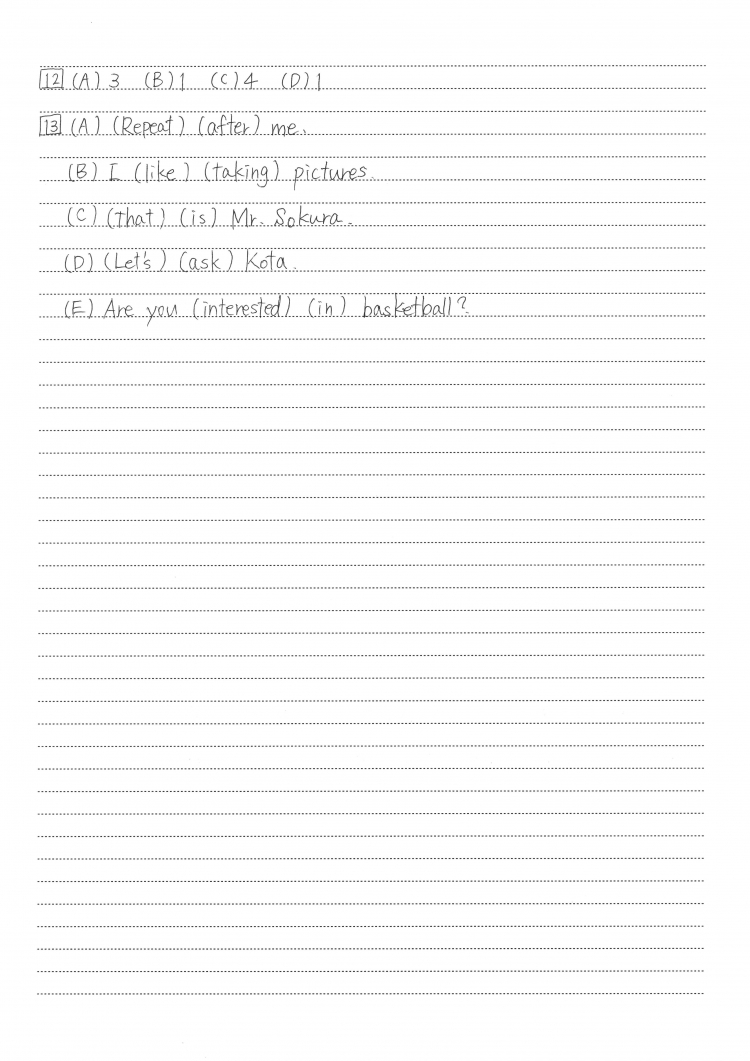 12 (A) 3 (B) 1 (C) 4 (D) 1
13 (A) (Repeat) (after) me.
(B) I (like) (taking) pictures.
(C) (that) (is) Mr. Sokura.
(D) (Let's) (ask) Kota.
(E) Are you (interested) (in) basketball?